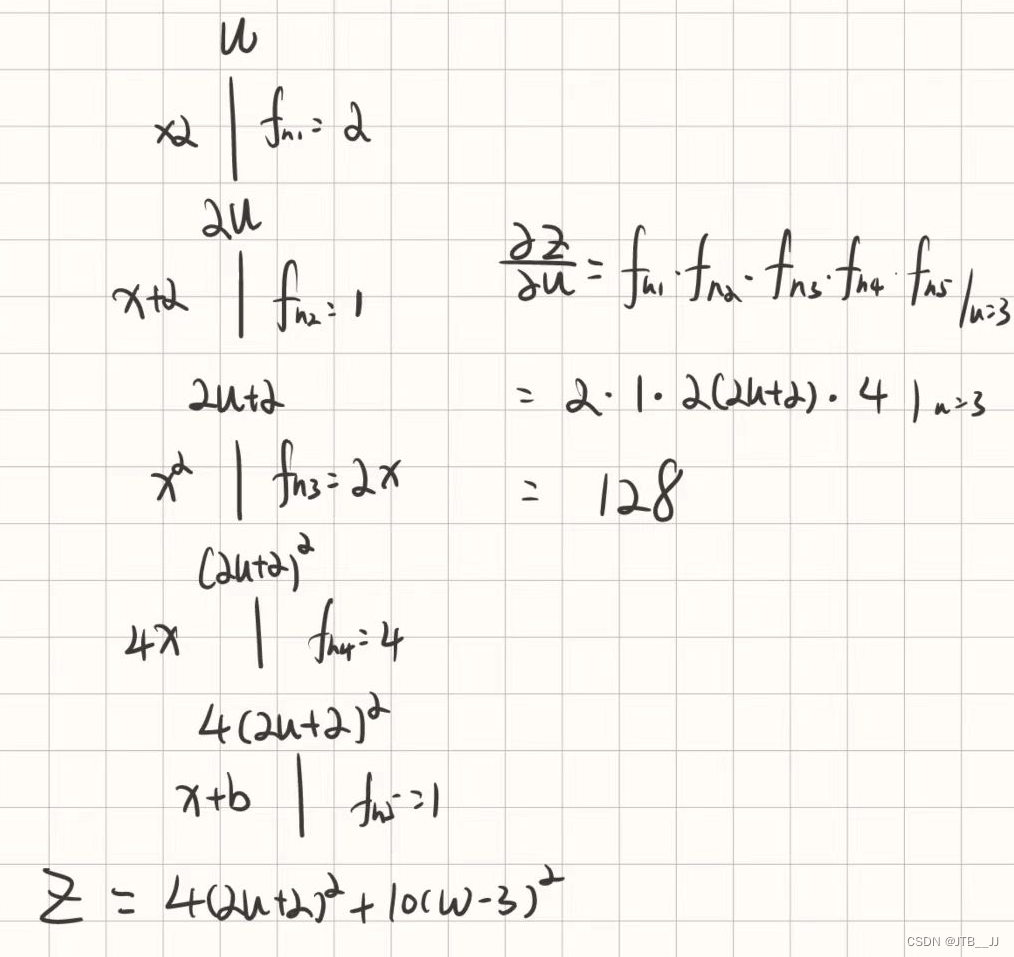 u
x2 | fn1 = 2
2u
x+2 | fn2 = 1
2u+2
x² | fn3 = 2x
(2u+2)²
4x | fn4 = 4
4(2u+2)²
x+b | fn5 = 1
Z = 4(2u+2)² + 10(w-3)²
∂Z/∂u = fn1 · fn2 · fn3 · fn4 · fn5 |u=3
= 2 · 1 · 2(2u+2) · 4 |u=3
= 128
CSDN @JTB__JJ